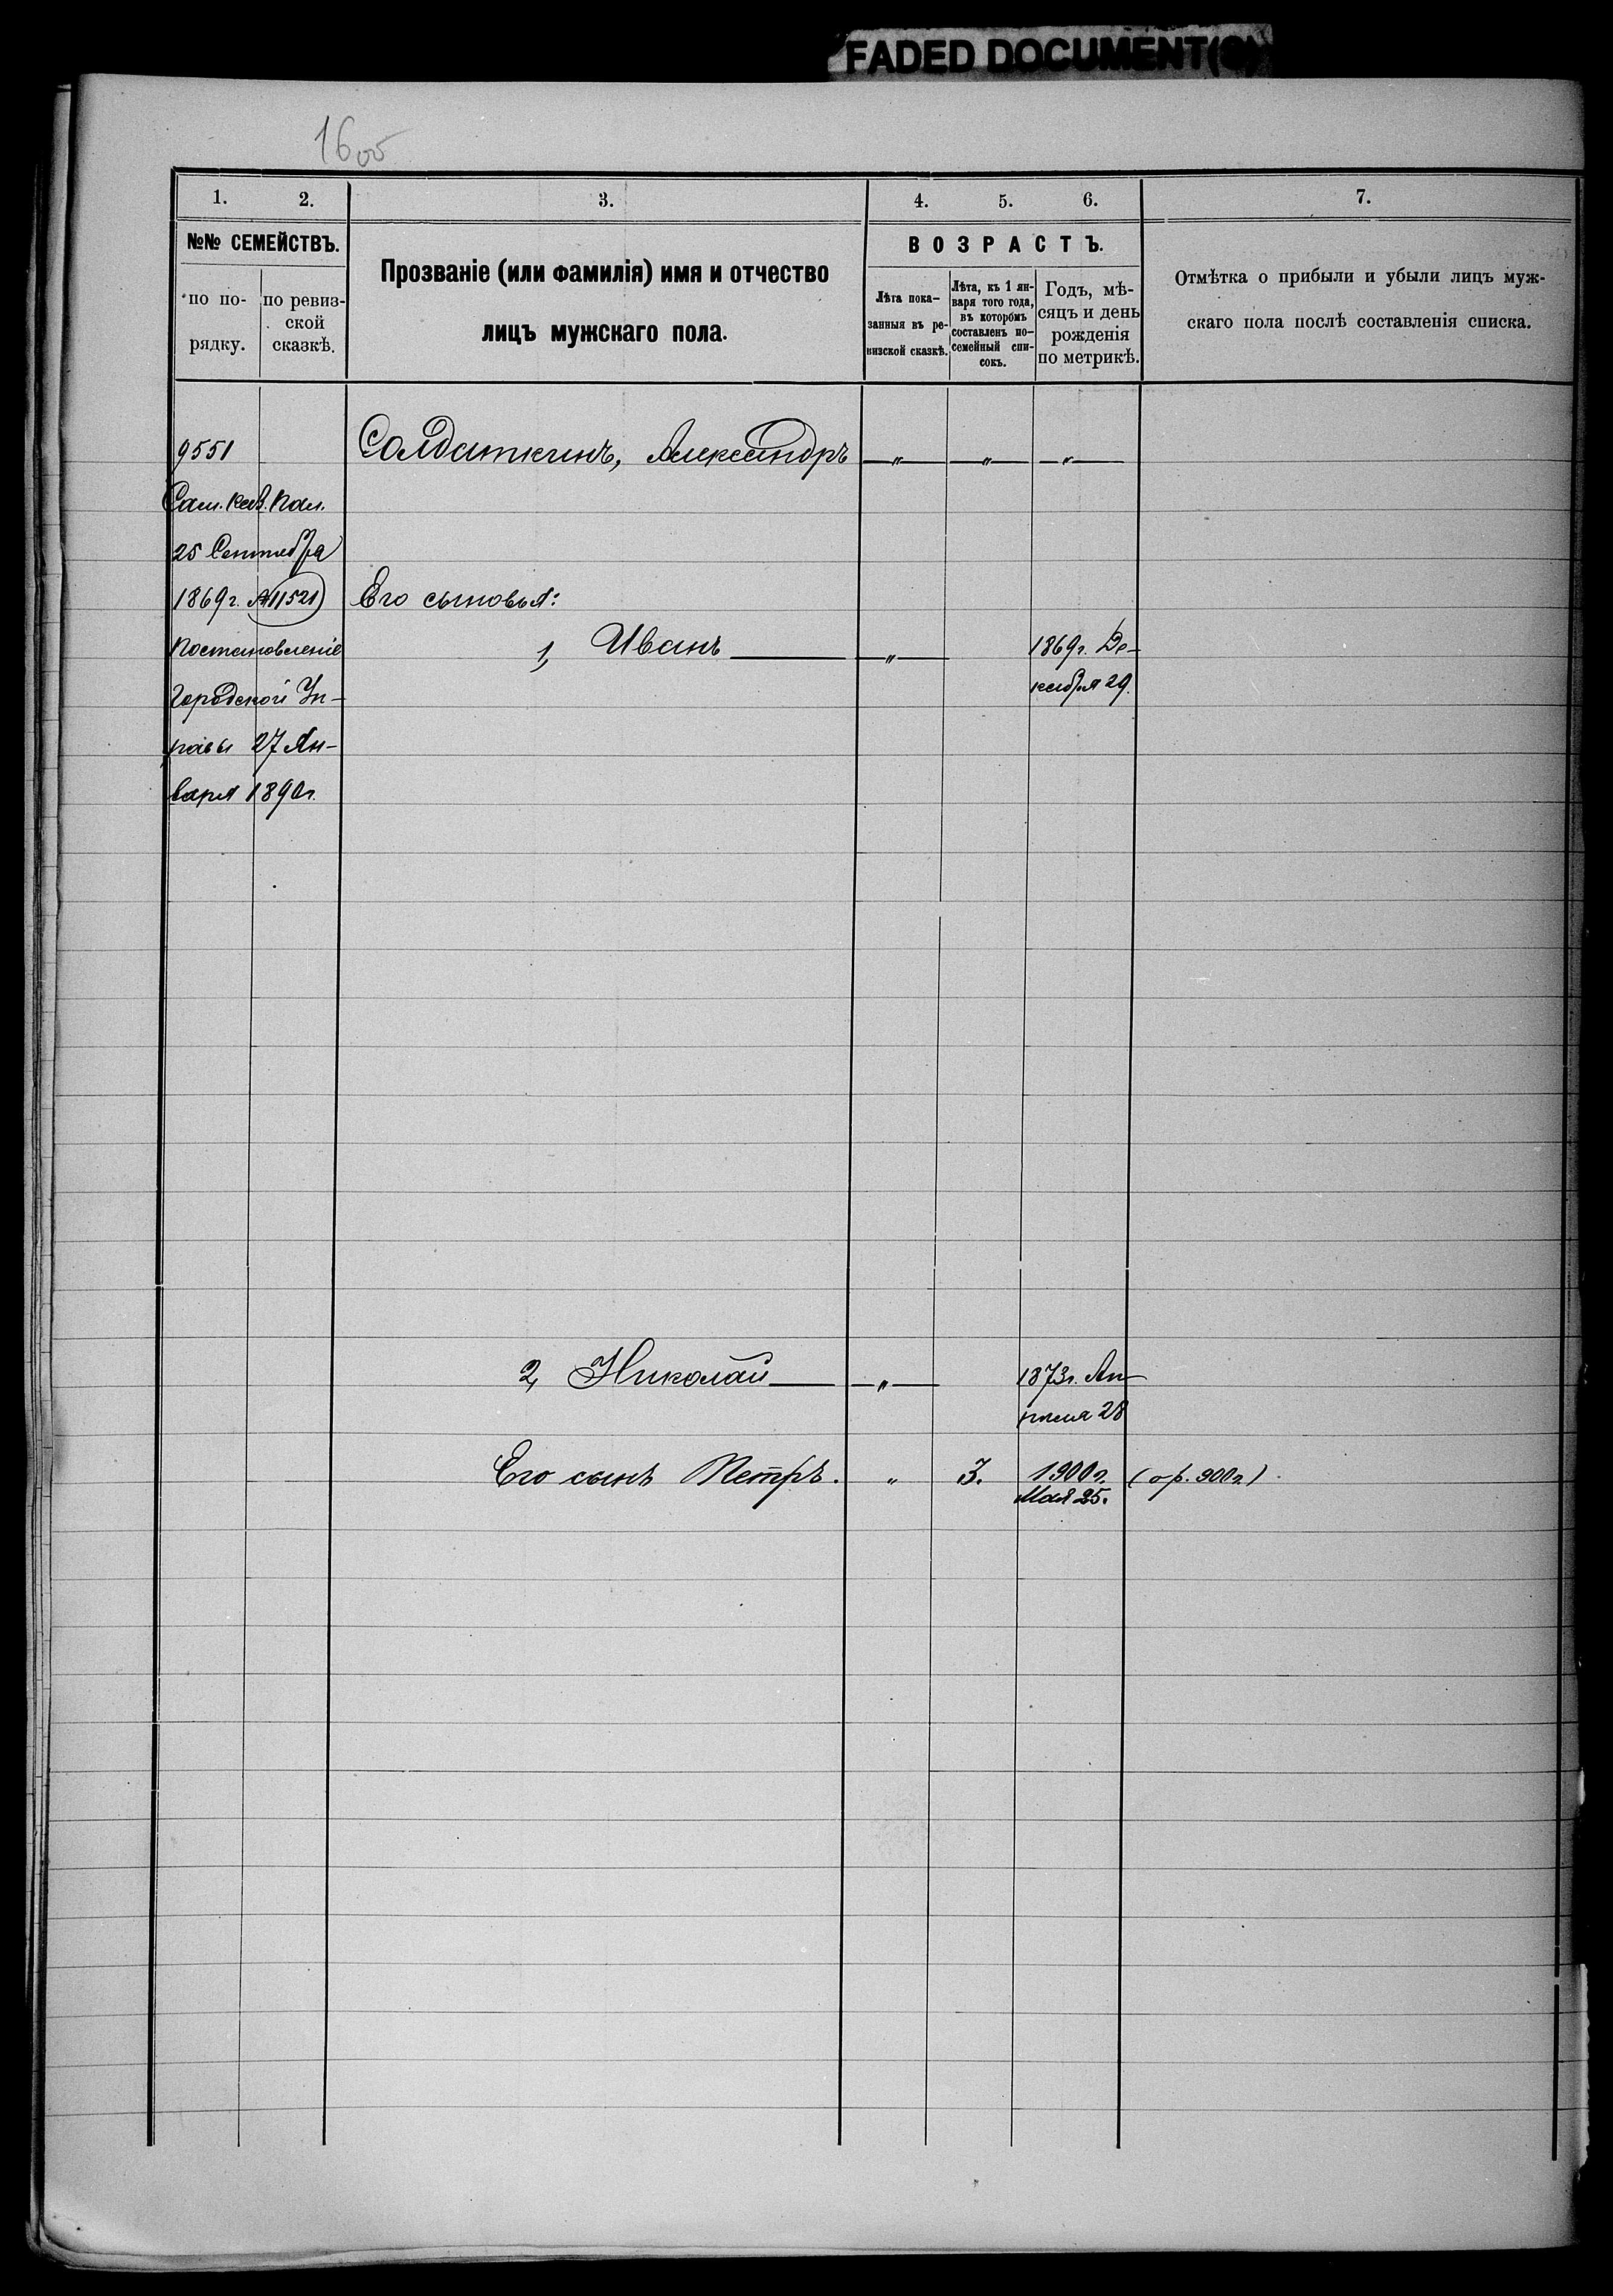 FADED DOCUMENT(S)
16об
1. 2. 3. 4. 5. 6. 7.
№№ СЕМЕЙСТВЪ.
по по-
рядку.
по ревиз-
ской
сказкѣ.
Прозваніе (или фамилія) имя и отчество
лицъ мужскаго пола.
ВОЗРАСТЪ.
Лѣта пока-
занныя въ ре-
визской сказкѣ.
Лѣта, къ 1 ян-
варя того года,
въ которомъ
составленъ по-
семейный спи-
сокъ.
Годъ, мѣ-
сяцъ и день
рожденія
по метрикѣ.
Отмѣтка о прибыли и убыли лицъ муж-
скаго пола послѣ составленія списка.
9551 Солдаткинъ, Александръ — „ — — „ — — „ —
Сам. Каз. Пал.
25 Сентября
1869 г. № 11521 Его сыновья:
Постановленіе
Городской Уп-
равы 27 Ян-
варя 1890 г.
1, Иванъ — „ — 1869 г. Де-
кабря 29.
2, Николай — „ — 1873 г. Ап-
рѣля 28
Его сынъ Петръ. „ 3. 1900 г. (ор. 900 г.)
Мая 25.